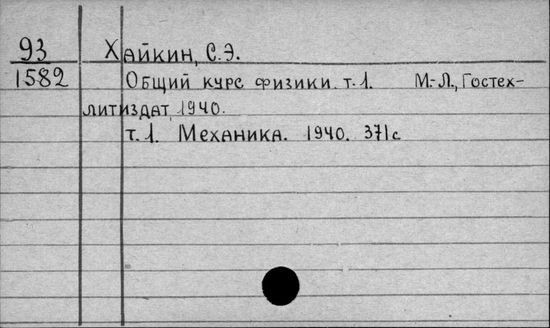 93 Хайкин, С.Э.
1582 Общий курс физики. т.1. М.-Л., Гостех-
литиздат, 1940.
т.1. Механика. 1940. 371с